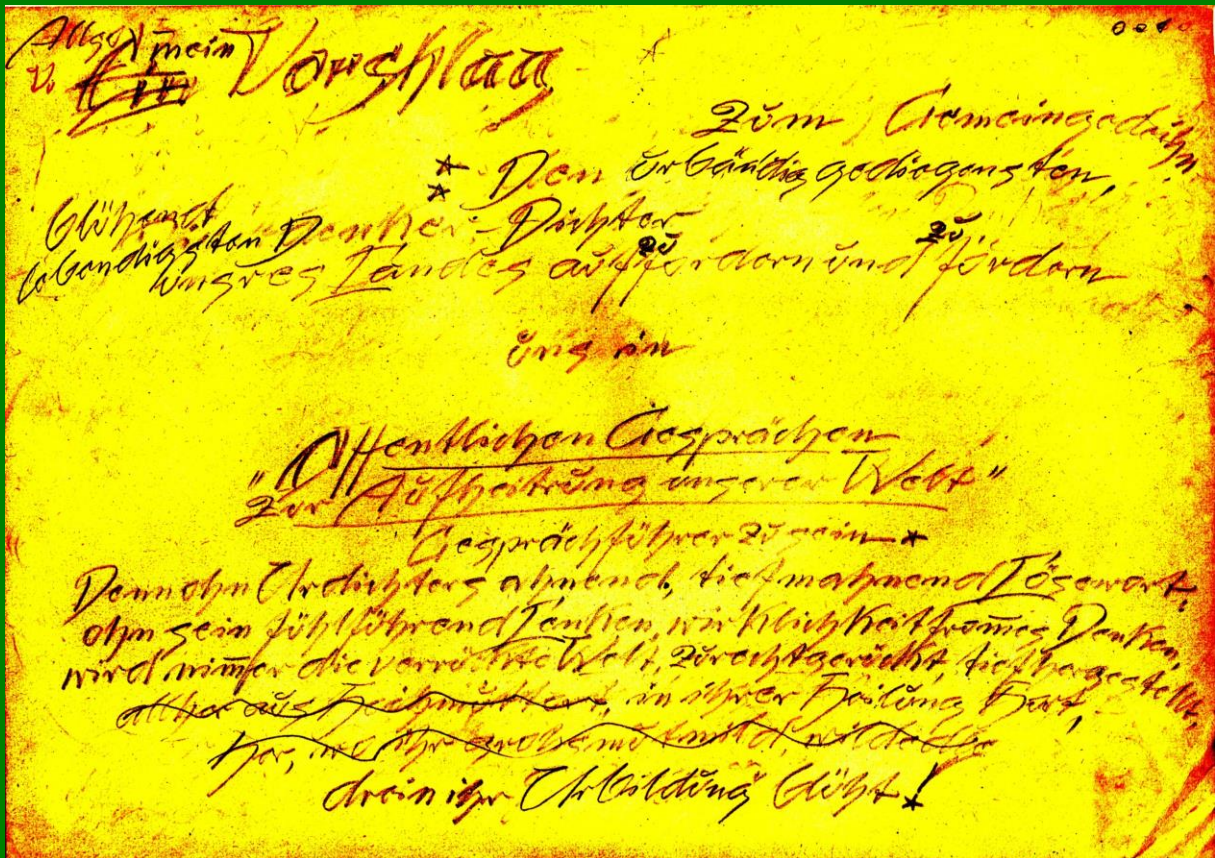 Allgemein
V. Ein Vorschlag
zum Gemeingedeihn
* Den urbändig gediegensten,
*
blühendst
lebendigsten Denker-Dichter
unsres Landes aufzufordern und zu fördern
uns in
"Öffentlichen Gesprächen
zur Aufheitrung unserer Welt"
Gesprächführer zu sein *
Denn ohn Urdichters ahnend, tiefmahnend Losewort,
ohn sein fühlführend Lenken, wirklichkeitfrom̄es Denken,
wird nim̄er die verrückte Welt, zurechtgerückt, tiefhergestellt,
in ihrer Heilung Hort,
drein ihr Urbildung blüht!